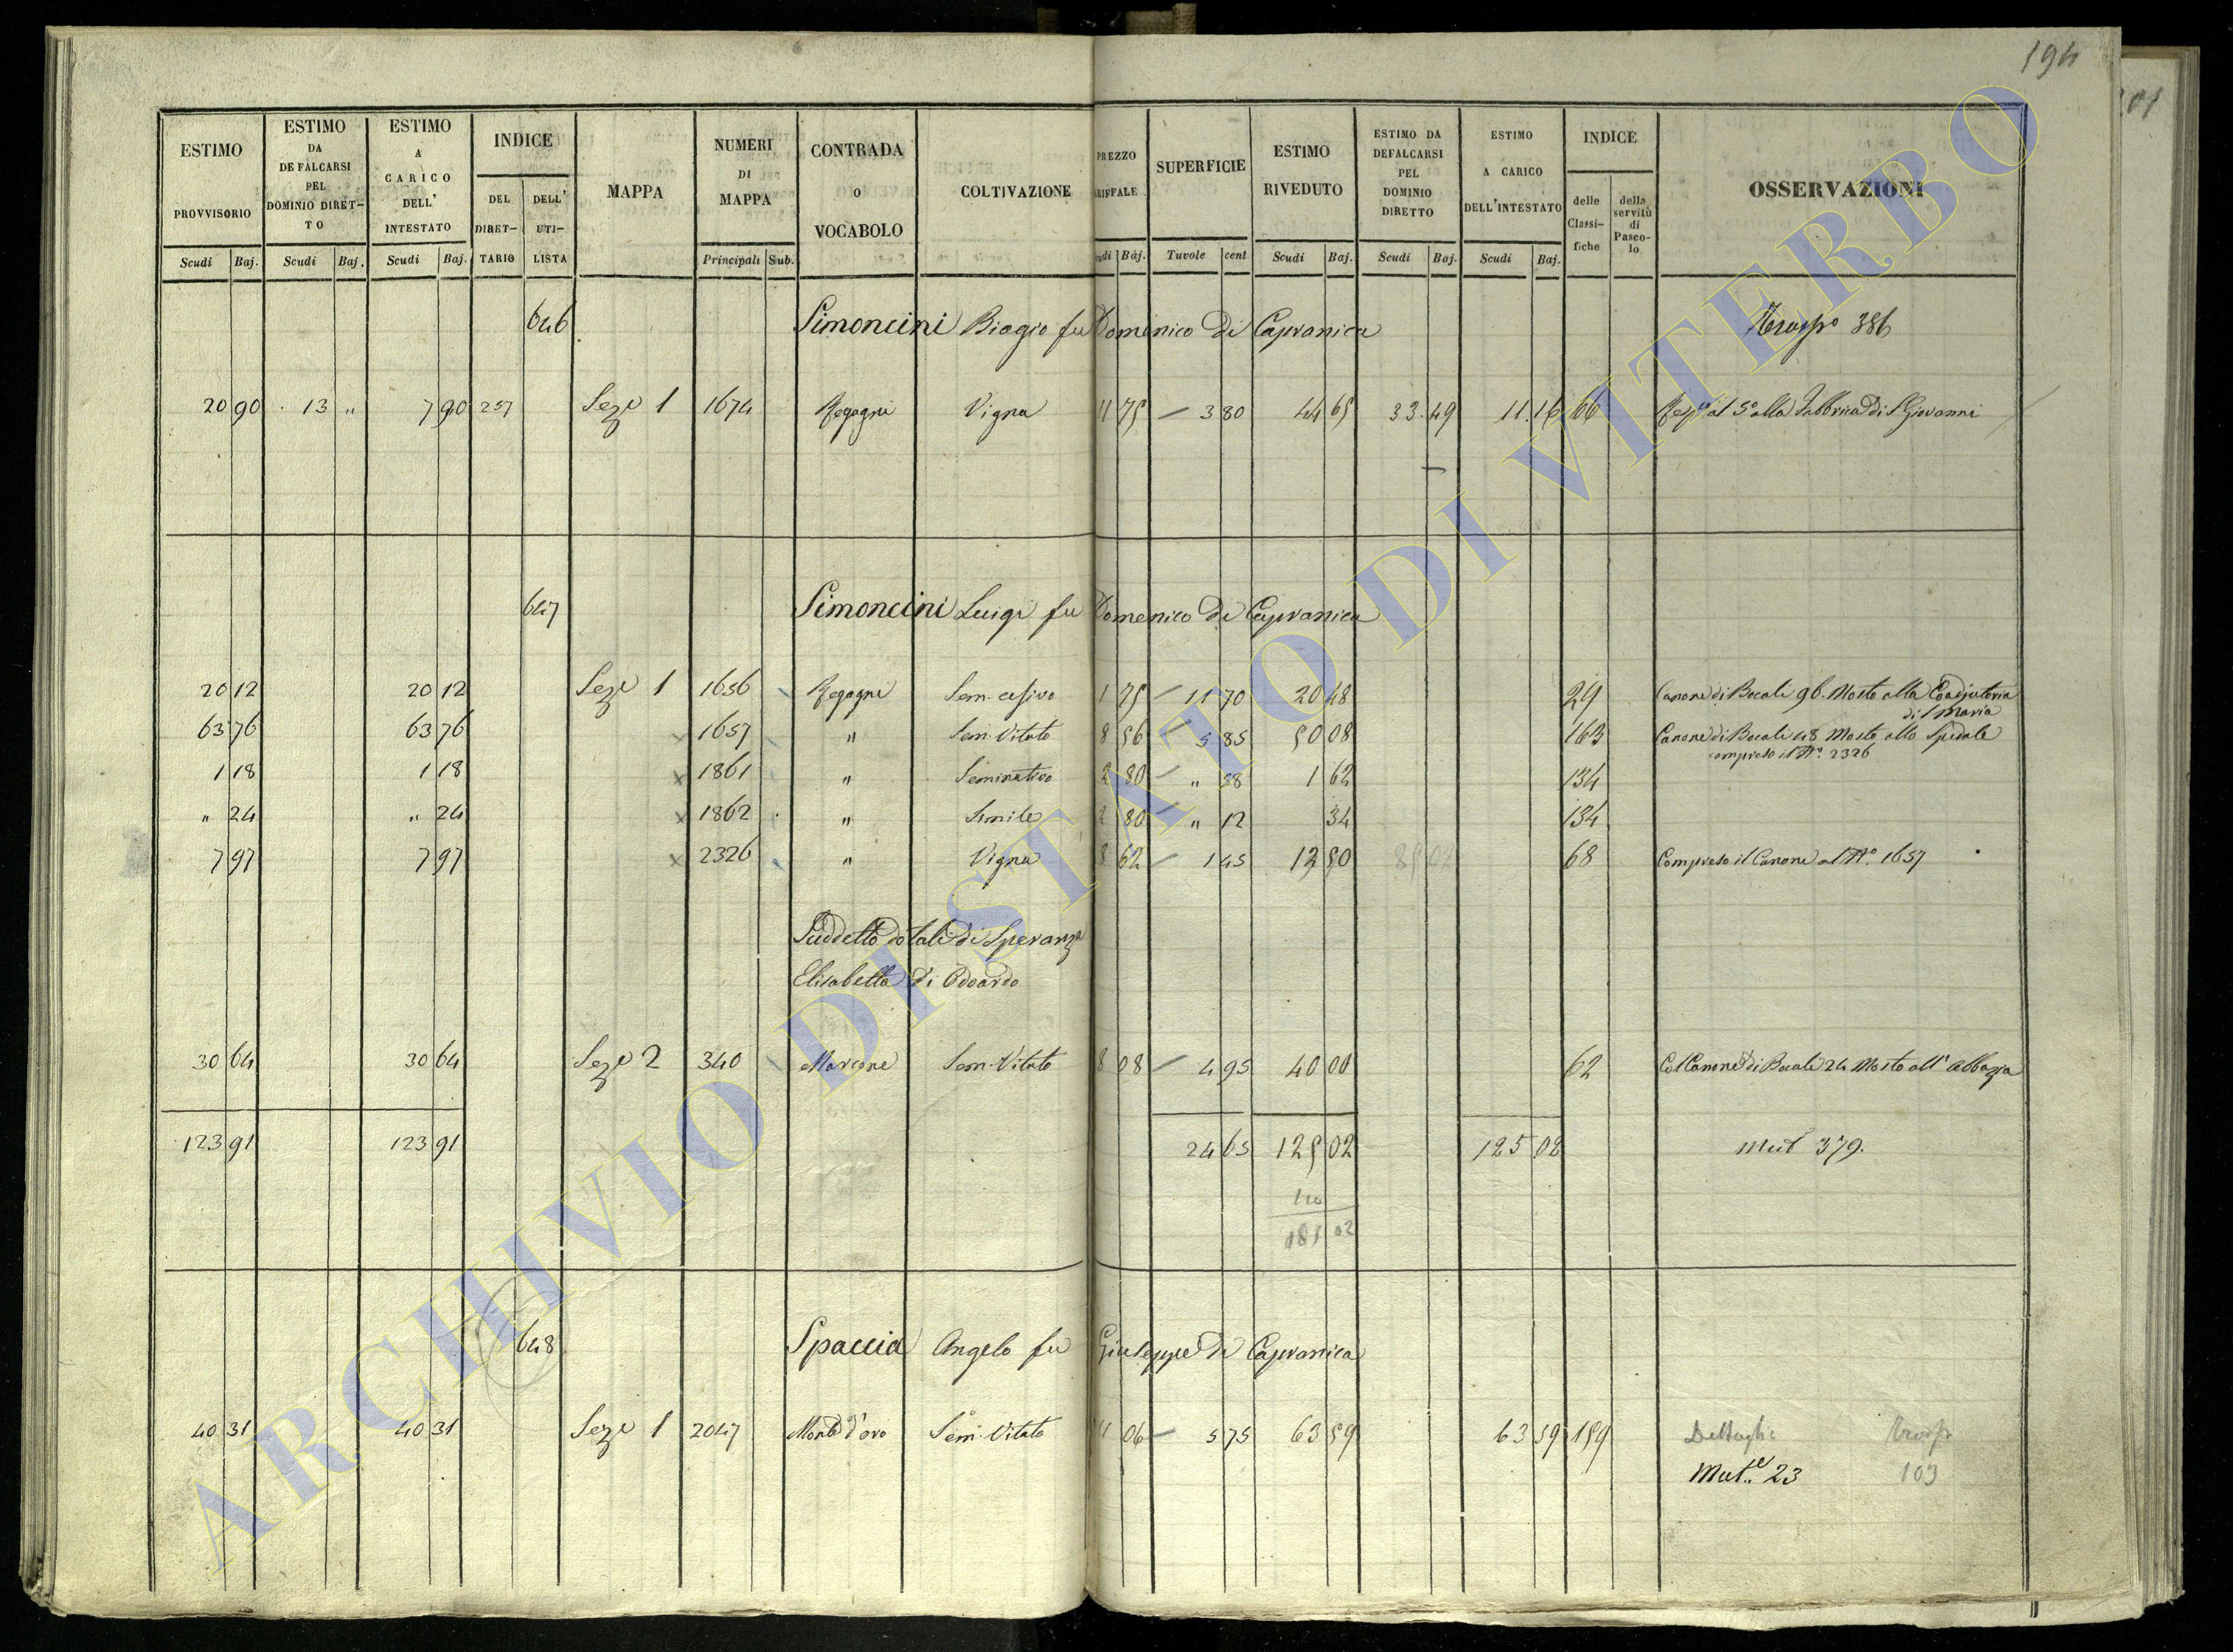 194
201
ESTIMO PROVVISORIO Scudi Baj.
ESTIMO DA DEFALCARSI PEL DOMINIO DIRET-TO Scudi Baj.
ESTIMO A CARICO DELL' INTESTATO Scudi Baj.
INDICE DEL DIRET-TARIO DELL' UTI-LISTA
MAPPA
NUMERI DI MAPPA Principali Sub.
CONTRADA O VOCABOLO
COLTIVAZIONE
PREZZO ARIFFALE udi Baj.
SUPERFICIE Tavole cent
ESTIMO RIVEDUTO Scudi Baj.
ESTIMO DA DEFALCARSI PEL DOMINIO DIRETTO Scudi Baj.
ESTIMO A CARICO DELL'INTESTATO Scudi Baj.
INDICE delle Classi-fiche della servitù di Pasco-lo
OSSERVAZIONI
646 Simoncini Biagio fu Domenico di Capranica Trasp.o 386
20 90 13 " 7 90 257 Seze 1 1674 Regagni Vigna 11 75 – 3 80 44 65 33 49 11 16 66 al 5.o alla Fabbrica di S Giovanni
647 Simoncini Luigi fu Domenico di Capranica
20 12 20 12 Seze 1 1656 Regagni Sem. cesivo 1 75 – 11 70 20 48 29 Canone di Bocali 96 Mosto alla Coadjutoria
di S Maria
63 76 63 76 x 1657 " Sem. Vitato 8 56 – 5 85 50 08 163 Canone di Bocali 48 Mosto allo Spedale
compreso il N.o 2326
1 18 1 18 x 1861 " Seminativo 2 80 – " 58 1 62 134
" 24 " 24 x 1862 " Simile 2 80 – " 12 34 134
7 97 7 97 x 2326 " Vigna 8 62 – 1 45 12 50 68 Compreso il Canone al N.o 1657
Suddetto dotali di Speranza
Elisabetta di Odoardo
30 64 30 64 Seze 2 340 Marcone Sem. Vitato 8 08 – 4 95 40 00 62 Col Canone di Bocali 24 Mosto all' Abbazia
123 91 123 91 24 65 125 02 125 02 Mut 379.
181 02
648 Spaccia Angelo fu Giuseppe di Capranica
40 31 40 31 Seze 1 2047 Monte d'oro Sem. Vitato 11 06 – 5 75 63 59 63 59 159 Dettaglio Trasp
Mut.e 23 103
ARCHIVIO DI STATO DI VITERBO